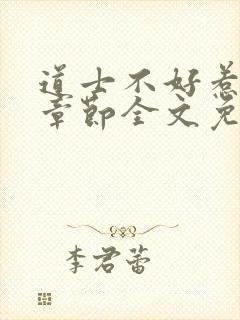 道士不好惹
章節全文免
李君蕾